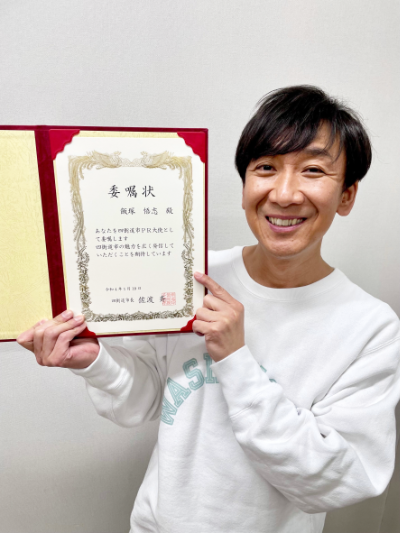 委嘱状
飯塚 悟志 殿
あなたを四街道市PR大使とし
て委嘱します
四街道市の魅力を広く発信して
いただくことを期待しています
四街道市長
WASA